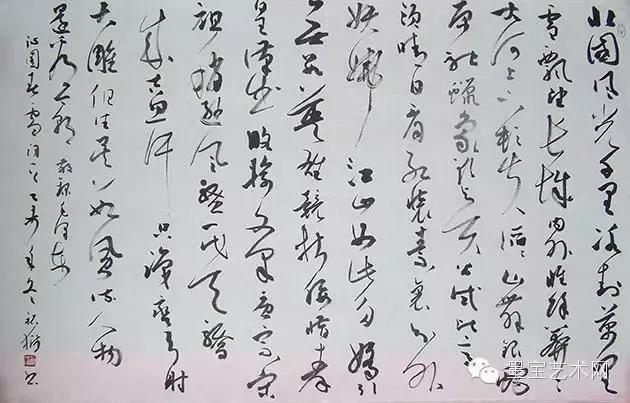 北国风光千里冰封万里
雪飘望长城内外惟馀莽〻
大河上下顿失滔〻山舞银蛇
原驰蜡象欲与天公试比高
须晴日看红装素裹分外
妖娆 江山如此多娇引
无数英雄竞折腰惜秦
皇汉武略输文采唐宗宋
祖稍逊风骚一代天骄
成吉思汗 只识弯弓射
大雕俱往矣数风流人物
还看今朝 敬录毛泽东
沁园春雪词 年冬 书
墨宝艺术网